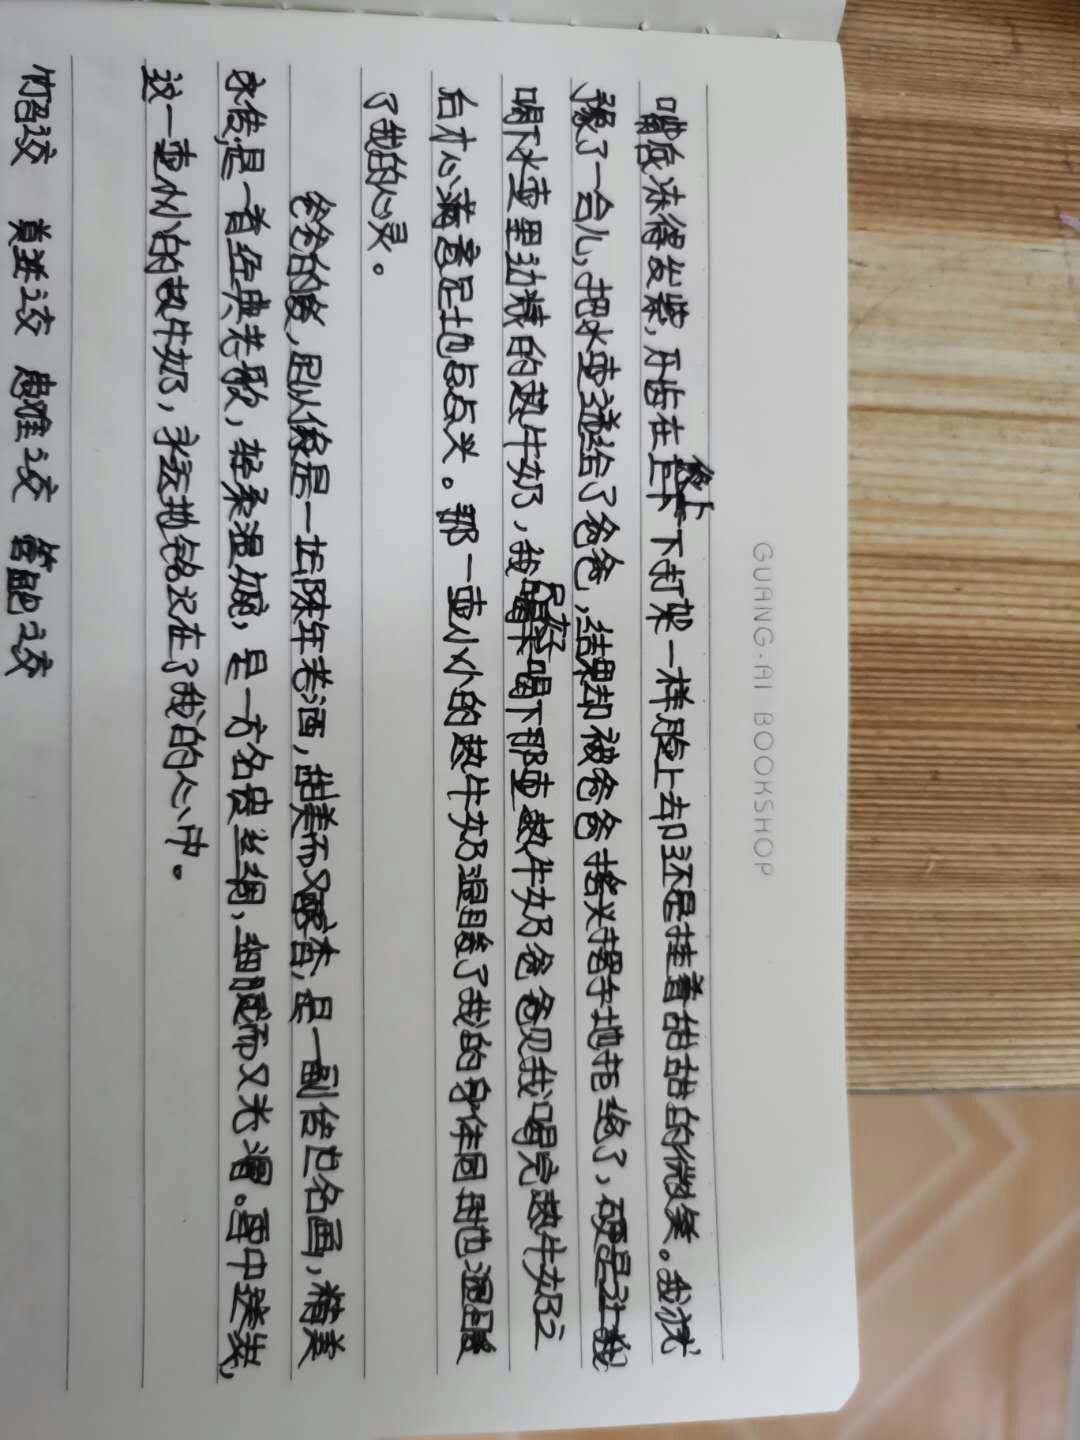 GUANG.AI BOOKSHOP
嘴唇冻得发紫,牙齿在上下打架一样脸上却还是挂着甜甜的微笑。我犹
豫了一会儿,把水壶递给了爸爸,结果却被爸爸摇头摆手地拒绝了,硬是让我
喝下水壶里的热牛奶,我只好喝下那壶热牛奶爸爸见我喝完热牛奶之
后才心满意足地点点头。那一壶小小的热牛奶温暖了我的身体同时也温暖
了我的心灵。
爸爸的爱,就像是一坛陈年老酒,甜美而又醇香,是一副传世名画,精美
永传,是一首经典老歌,轻柔温婉,是一方名贵丝绸,细腻而又光滑。雪中送炭,
这一壶小小的热牛奶,永远地铭记在了我的心中。
竹西之交 莫逆之交 患难之交 管鲍之交